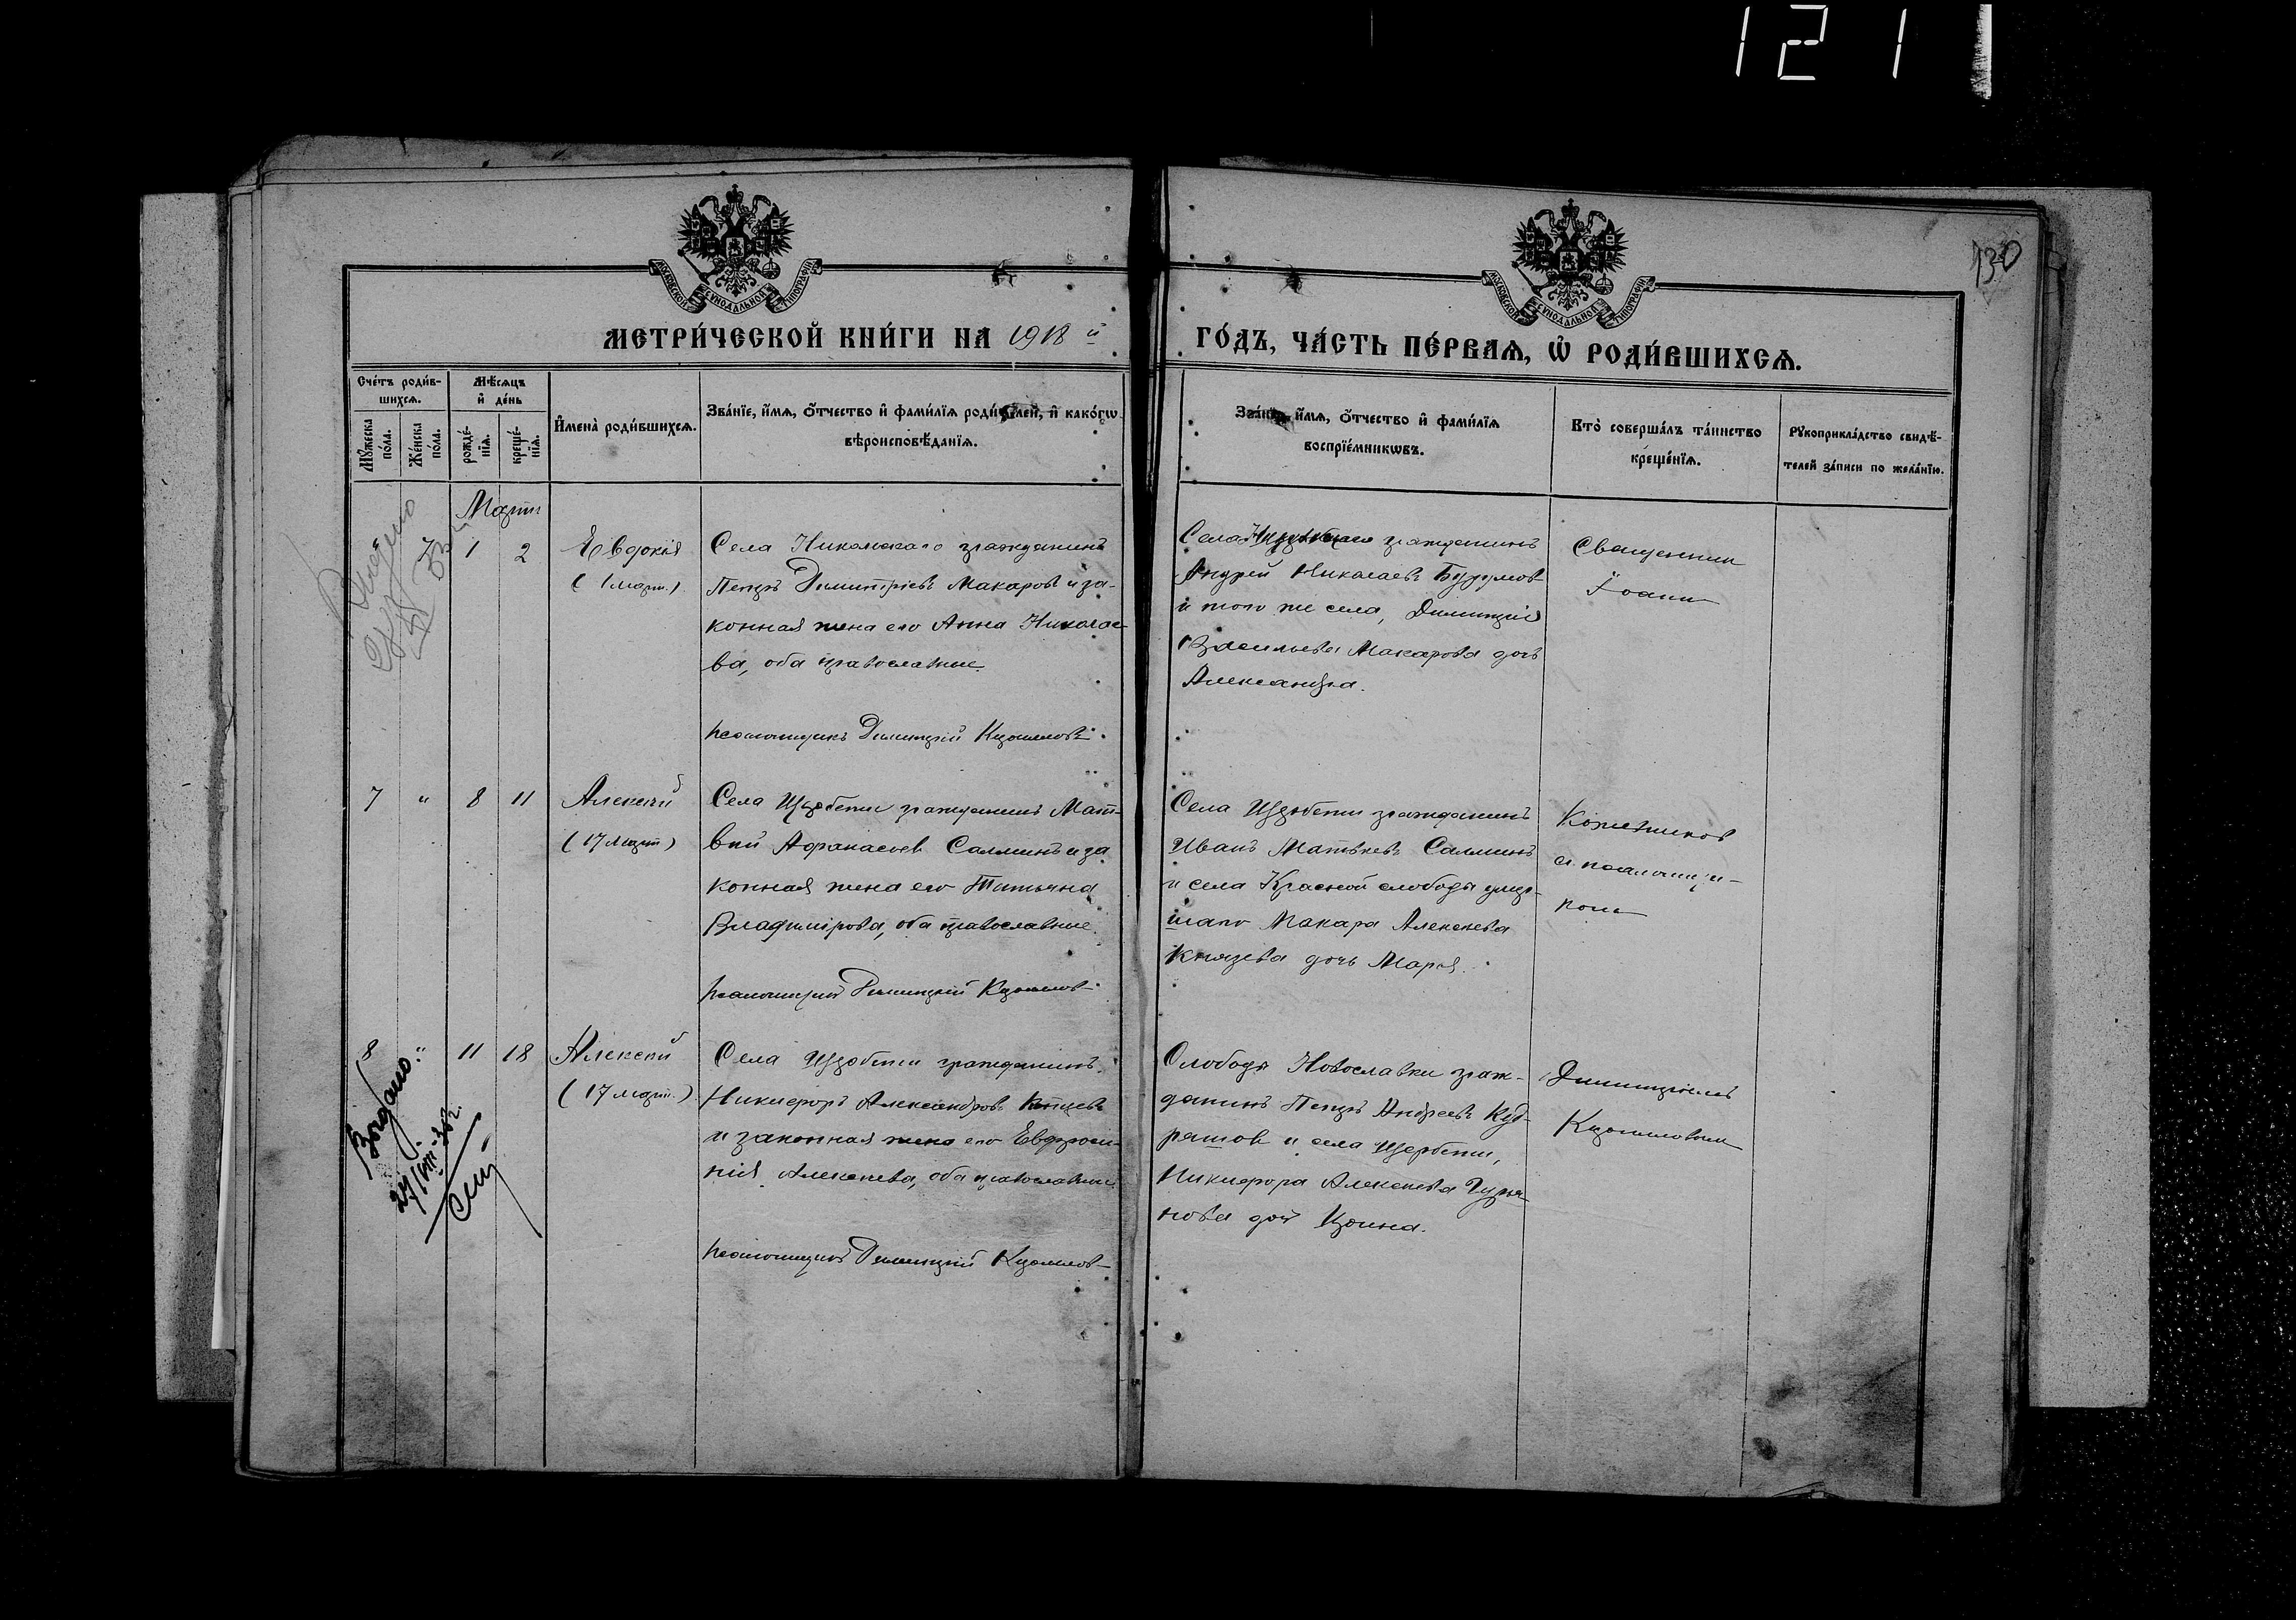 1211
130
МОСКОВСКОЙ СѴНОДАЛЬНОЙ ТИПОГРАФІИ
МОСКОВСКОЙ СѴНОДАЛЬНОЙ ТИПОГРАФІИ
МЕТРИ́ЧЕСКОЙ КНИ́ГИ НА 1918 й
ГО́ДЪ, ЧА́СТЬ ПЕ́РВАѦ, Ѡ҆ РОДИ́ВШИХСѦ.
Сче́тъ роди́в-
шихсѧ.
Мѣ́сѧцъ
и҆ де́нь
Мꙋ́жеска
по́ла.
Же́нска
по́ла.
рожде́-
нїѧ.
креще́-
нїѧ.
И҆мена̀ роди́вшихсѧ.
Зва́нїе, и҆́мѧ, ѻ҆́тчество и҆ фами́лїѧ роди́телей, и҆ како́гѡ
вѣроисповѣ́данїѧ.
Зва́нїе, и҆́мѧ, ѻ҆́тчество и҆ фами́лїѧ
воспрїе́мникѡвъ.
Кто̀ соверша́лъ та́инство
креще́нїѧ.
Рꙋкоприкла́дство свидѣ́-
телей за́писи по жела́нїю.
Мартъ
7 1 2
Евдокія
(1 март.)
Села Никольскаго гражданинъ
Петръ Димитріевъ Макаровъ и за-
конная жена его Анна Николае-
ва, оба православные.
Псаломщикъ Димитрій
Села гражданинъ
Андрей Николаевъ
и того же села, Димитрія
Васильева Макарова дочь
Александра.
Священник
Іоанн
7 " 8 11
Алексѣй
(17 март)
Села Щербети гражданинъ Мат-
вѣй Афанасьевъ Салминъ и за
конная жена его Татьяна
Владимірова, оба православные.
Псаломщикъ Димитрій
Села Щербети гражданинъ
Иванъ Матвѣевъ Салминъ
и села Красной слободы умер-
шаго Макара Алексѣева
Князева дочь Марія.
Кожевников
и псаломщи-
ком
8 " 11 18
Алексѣй
(17 март.)
Села Щербети гражданинъ
Никифоръ Александровъ
и законная жена его Евфроси-
нія Алексѣева, оба православные
Псаломщикъ Димитрій
Слободы Новославки граж-
данинъ Петръ Андреевъ Куд-
ряшов и села Щербети,
Никифора Алексѣева Гурья-
нова дочь Ирина.
Димитріемъ
Выдано